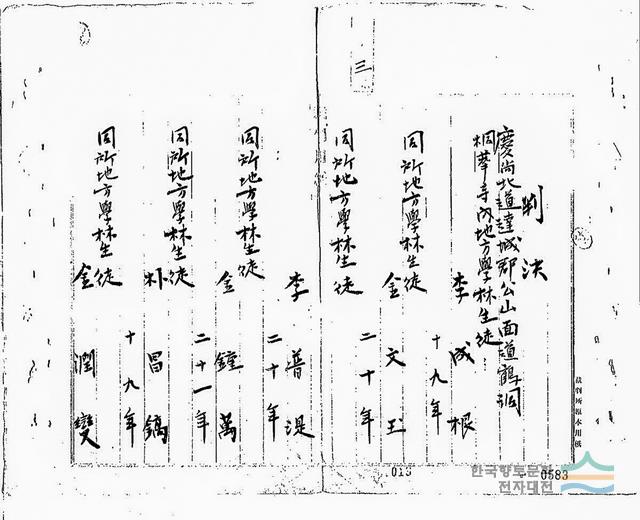 三
判決
慶尚北道達城郡公山面道鶴洞
桐華寺內地方學林生徒
李成根
十九年
同所地方學林生徒
金文玉
二十年
同所地方學林生徒
李普湜
二十年
同所地方學林生徒
金鍾萬
二十一年
同所地方學林生徒
朴昌鎬
十九年
同所地方學林生徒
金潤燮
裁判所原本用紙
013
0583
한국향토문화
전자대전